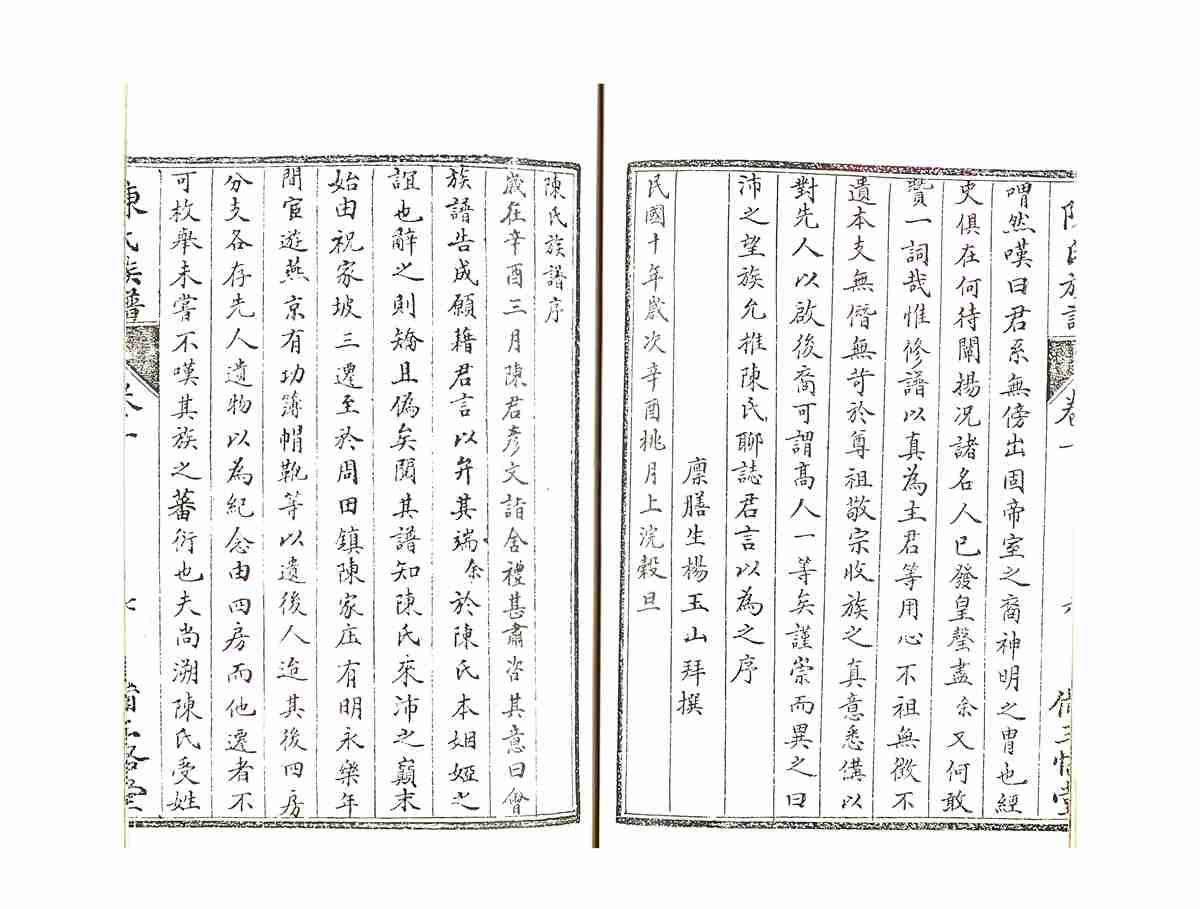 陳氏族譜
卷一
六
備三恪堂
喟然嘆曰君系無傍出固帝室之裔神明之胄也經
史俱在何待闡揚況諸名人已發皇罄盡余又何敢
贊一詞哉惟修譜以真為主君等用心不祖無徵不
遺本支無僭無苛於尊祖敬宗收族之真意悉備以
對先人以啟後裔可謂高人一等矣謹崇而異之曰
沛之望族允推陳氏聊誌君言以為之序
廩膳生楊玉山拜撰
民國十年歲次辛酉桃月上浣穀旦
陳氏族譜序
歲在辛酉三月陳君彥文詣舍禮甚肅咨其意曰僉
族譜告成願籍君言以弁其端余於陳氏本姻婭之
誼也辭之則矯且偽矣閱其譜知陳氏來沛之巔末
始由祝家坡三遷至於周田鎮陳家庄有明永樂年
間宦遊燕京有功簿帽靴等以遺後人迨其後四房
分支各存先人遺物以為紀念由四房而他遷者不
可枚舉未嘗不嘆其族之蕃衍也夫尚溯陳氏受姓
陳氏族譜
卷一
七
備三恪堂